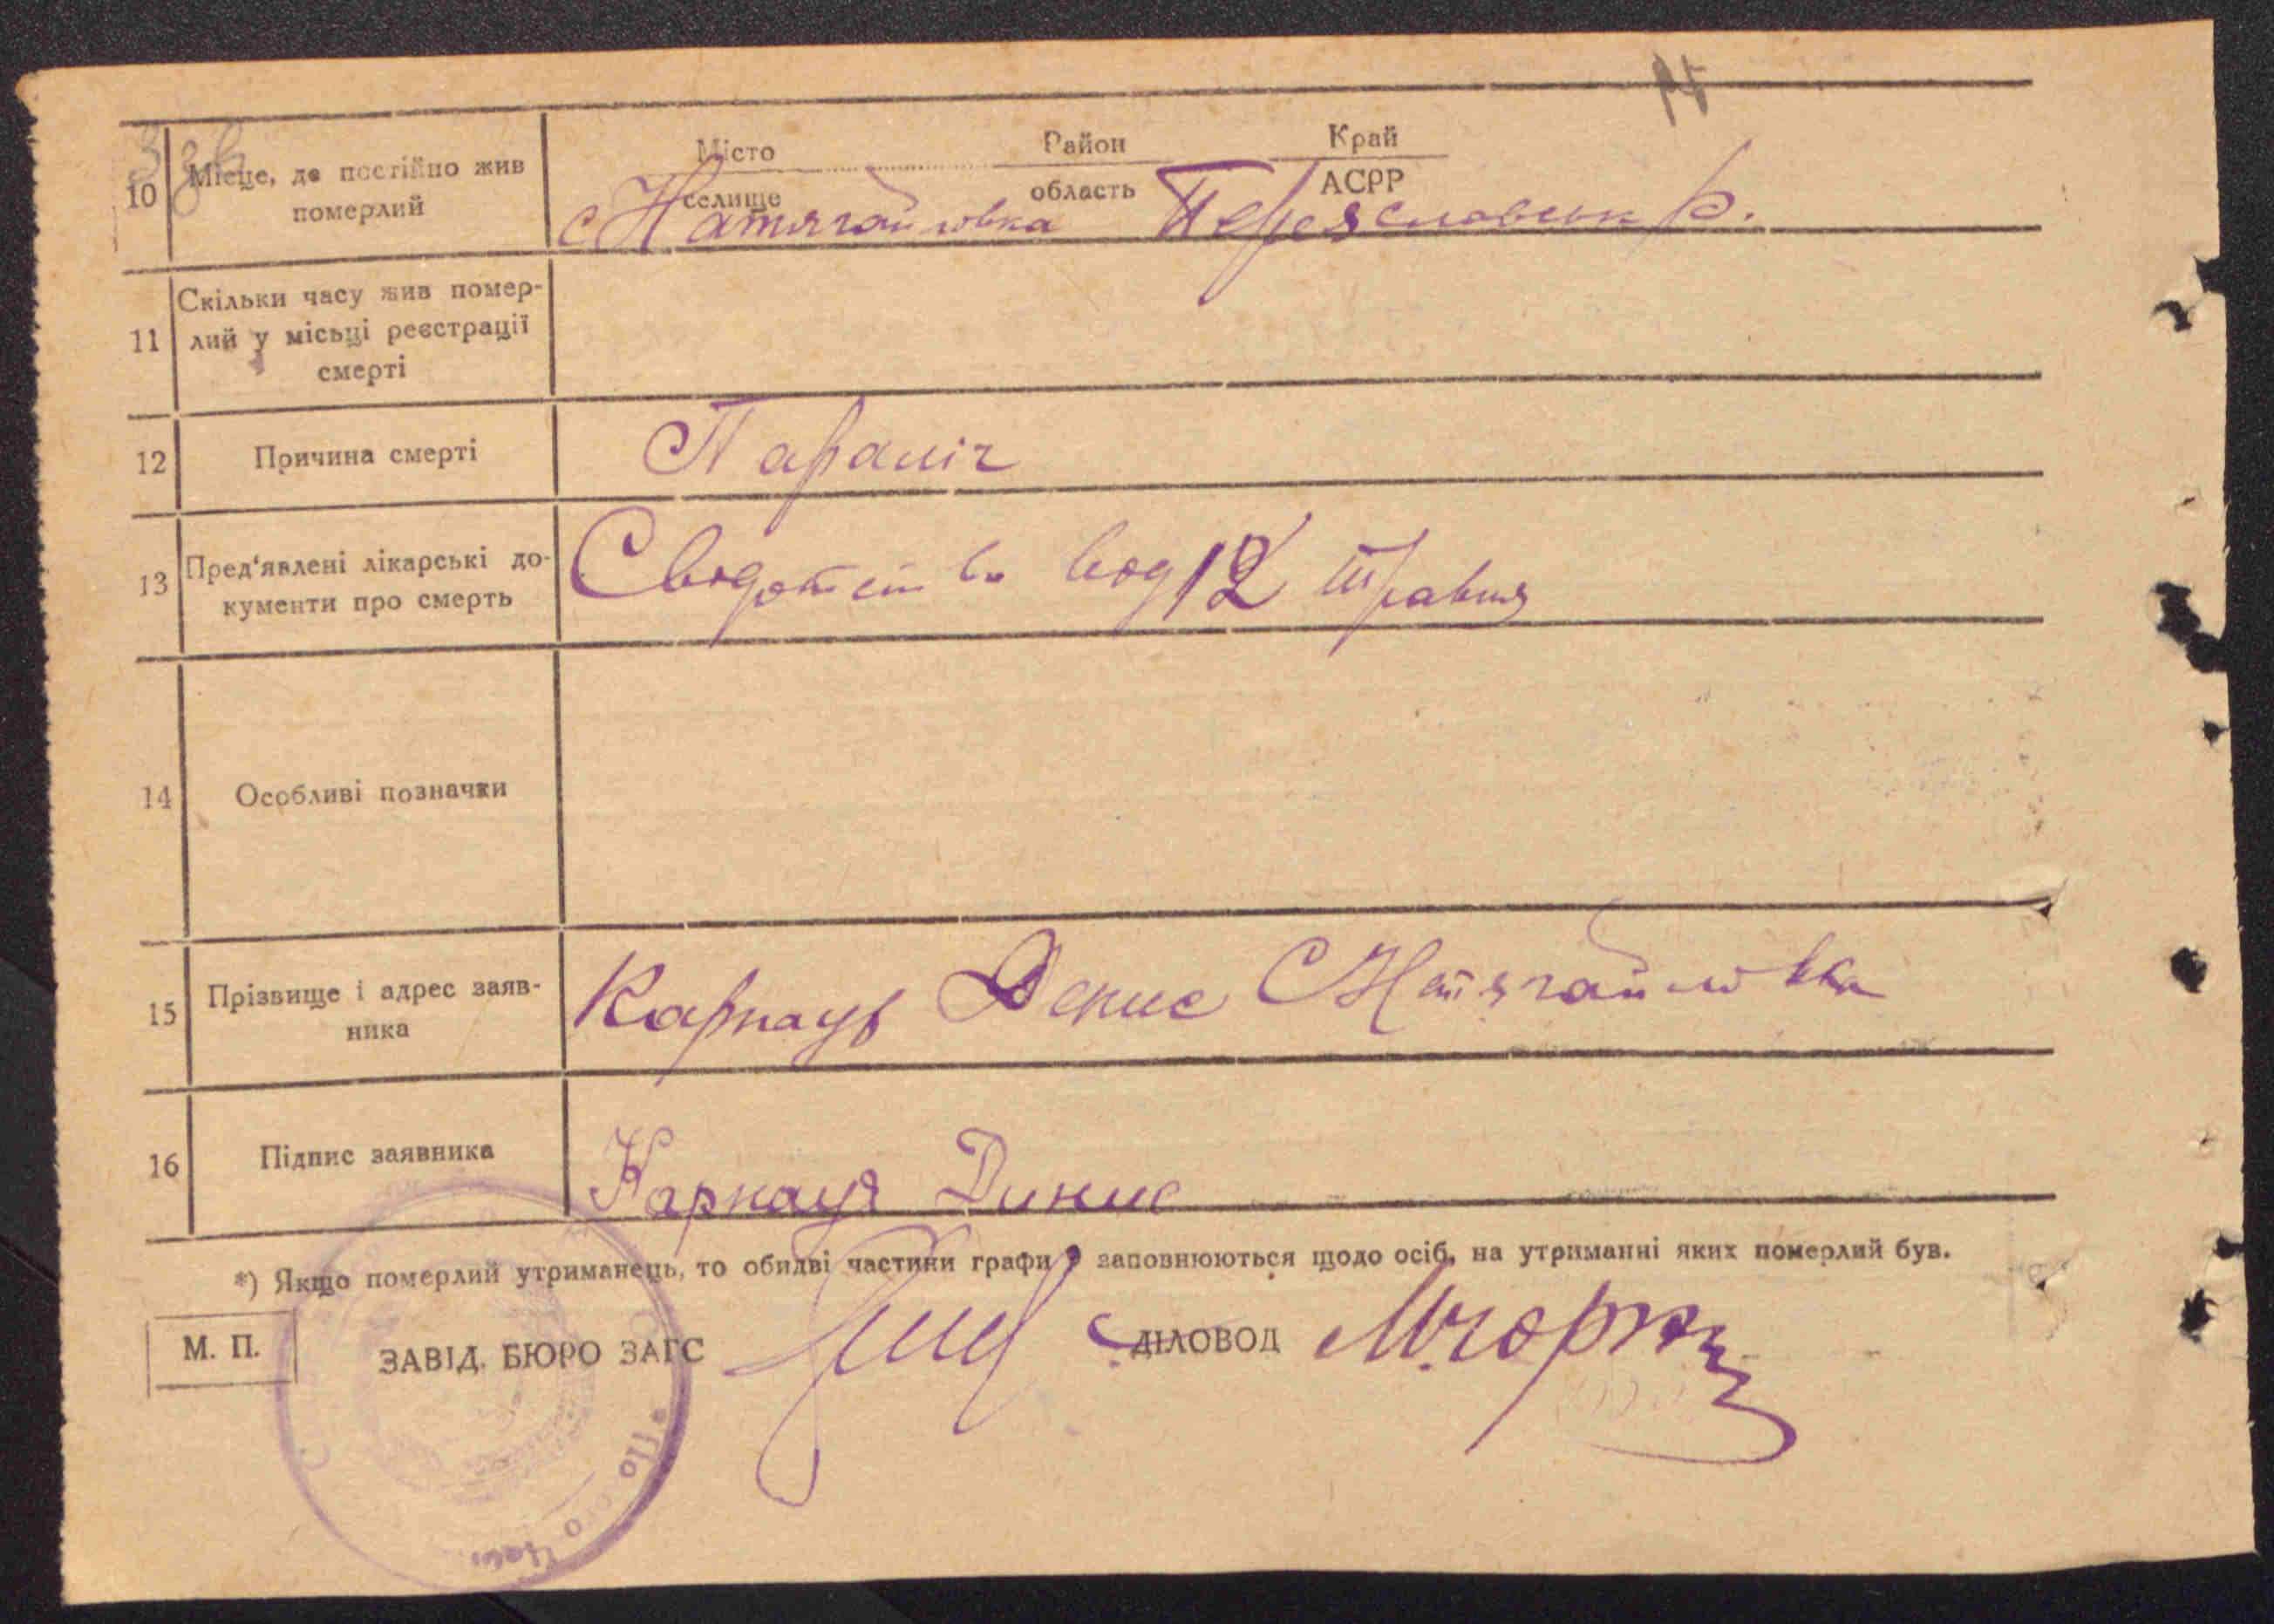 Місто Район Край
10 Місце, де постійно жив померлий селище область АСРР
с Натягайловка Переяславськ р.
11 Скільки часу жив помер-
лий у місьці реєстрації
смерті
12 Причина смерті Параліч
13 Пред'явлені лікарські до-
кументи про смерть
Сведотство вод 12 травня
14 Особливі позначки
15 Прізвище і адрес заяв-
ника
Карнаух Денис С Натягайловка
16 Підпис заявника
Карнаух Динис
*) Якщо померлий утриманець, то обидві частини графи 9 заповнюються щодо осіб, на утриманні яких померлий був.
М. П. ЗАВІД. БЮРО ЗАГС ДІЛОВОД